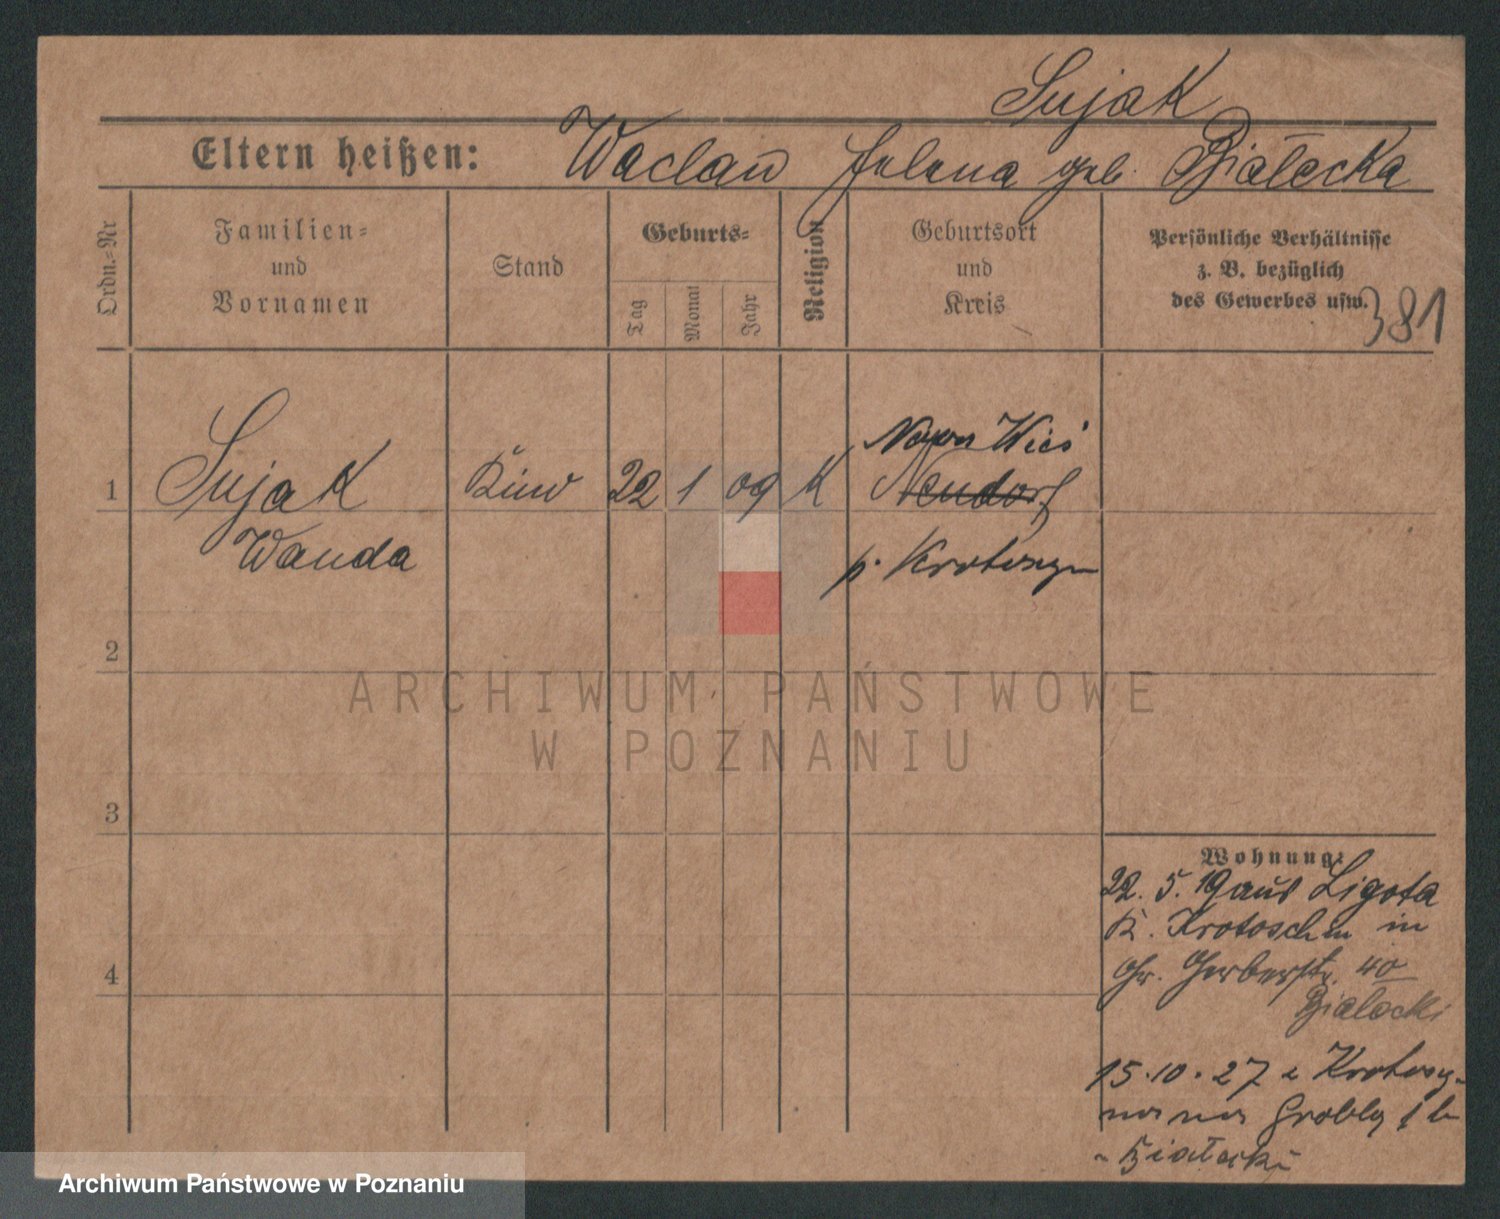 Sujak
Eltern heißen: Waclaw Helena geb. Białecka
Ordn.-Nr
Familien-
und
Vornamen
Stand
Geburts-
Tag
Monat
Jahr
Religion
Geburtsort
und
Kreis
Persönliche Verhältnisse
z. B. bezüglich
des Gewerbes usw.
381
Nowa Wieś
1 Sujak Kind 22 1 09 K Neudorf
Wanda
p. Krotoszyn
2
ARCHIWUM PAŃSTWOWE
W POZNANIU
3
Wohnung:
22. 5. 19 aus Ligota
K. Krotoschin in
Gr. Gerberstr. 40
Bialecki
4
15.10.27 z Krotoszy-
na na Grobla 1
Białecki
Archiwum Państwowe w Poznaniu